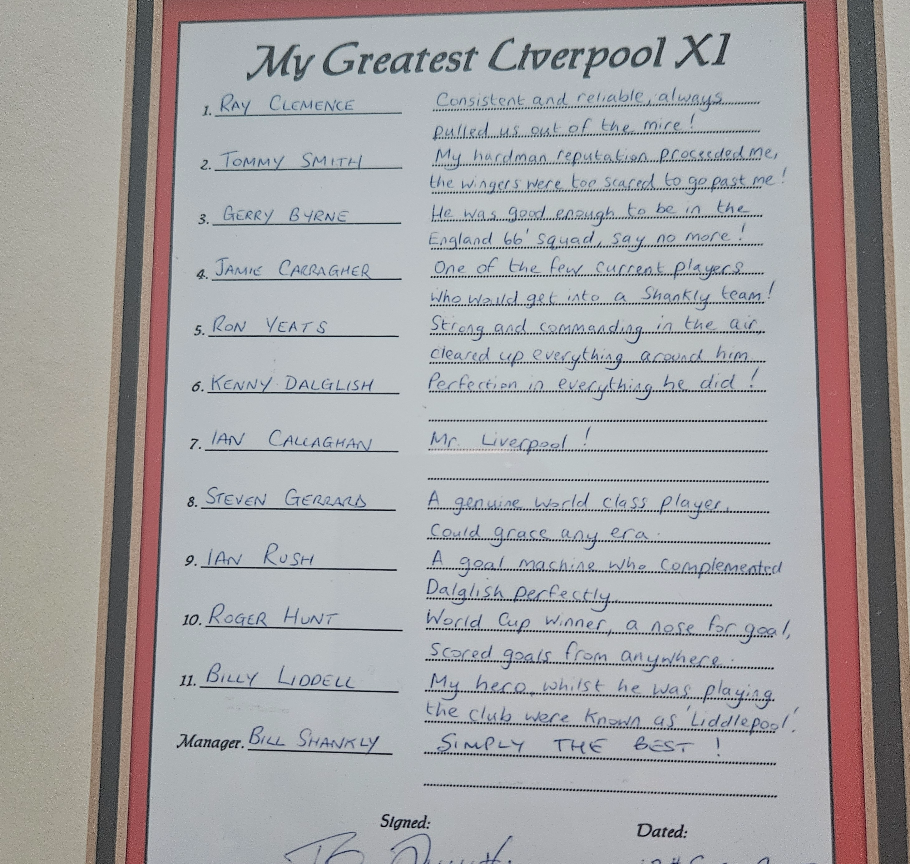 My Greatest Liverpool XI
1. RAY CLEMENCE Consistent and reliable, always
pulled us out of the mire!
2. TOMMY SMITH My hardman reputation proceeded me,
the wingers were too scared to go past me!
3. GERRY BYRNE He was good enough to be in the
England 66' squad, say no more!
4. JAMIE CARRAGHER One of the few current players
who would get into a Shankly team!
5. RON YEATS Strong and commanding in the air,
cleared up everything around him
6. KENNY DALGLISH Perfection in everything he did!
7. IAN CALLAGHAN Mr. Liverpool!
8. STEVEN GERRARD A genuine world class player,
Could grace any era.
9. IAN RUSH A goal machine who complemented
Dalglish perfectly
10. ROGER HUNT World Cup winner, a nose for goal,
scored goals from anywhere.
11. BILLY LIDDELL My hero, whilst he was playing
the club were known as 'Liddlepool'.
Manager. BILL SHANKLY SIMPLY THE BEST!
Signed: Dated: